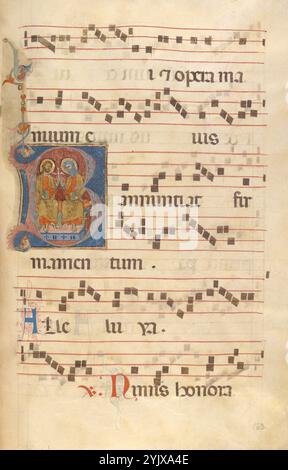 i ⁊ opera ma
nuum e ius
annunciat fir
mamen tum .
A lle lu ya .
℣. Nimis honora